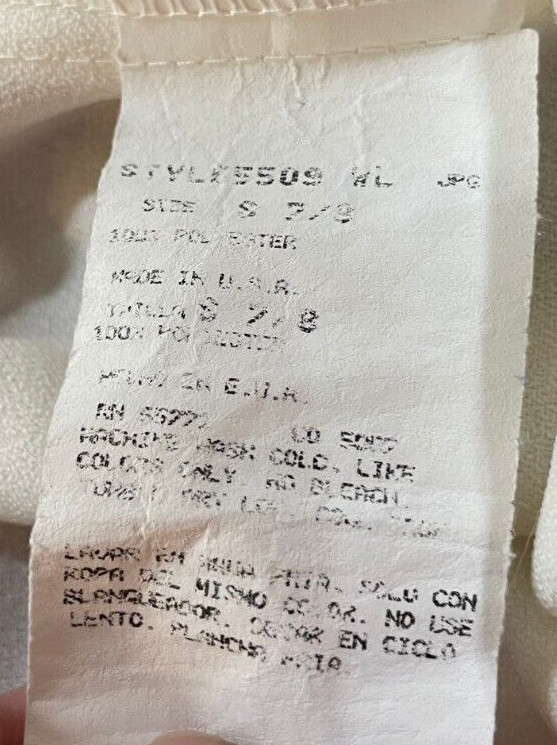 STYLE5509 WL JPG
SIZE S 7/8
100% POLYESTER
MADE IN U.S.A.
TAILLA S 7/8
100%
IN E.U.A.
RN
MACHINE WASH COLD. LIKE
COLORS ONLY. NO BLEACH
TUMBLE DRY LOW. COOL IRON
LAVAR EN AGUA FRIA. SOLO CON
ROPA DEL MISMO COLOR. NO USE
BLANQUEADOR. SECAR EN CICLO
LENTO. PLANCHA FRIA.